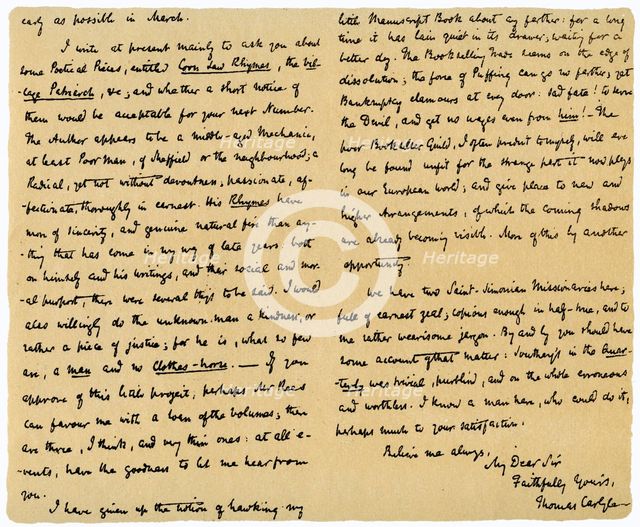 early as possible in March.
I write at present mainly to ask you about
some Poetical Pieces, entitled Corn Law Rhymes, the Vil-
lage Patriarch, &c; and whether a short notice of
them would be acceptable for your next Number.
The Author appears to be a middle-aged Mechanic,
at least Poor man, of Sheffield or the neighbourhood; a
Radical, yet not without devoutness; passionate, af-
fectionate, thoroughly in earnest. His Rhymes have
more of sincerity, and genuine natural fire than any-
thing that has come in my way of late years: both
on himself and his writings, and their social and mor-
al purport, there were several things to be said. I would
also willingly do the unknown man a kindness, or
rather a piece of justice; for he is, what so few
are, a man and no Clothes-horse. — If you
approve of this little project, perhaps Mr Rees
can favour me with a loan of the volumes; there
are three, I think, and very thin ones: at all e-
vents, have the goodness to let me hear from
you.
I have given up the notion of hawking my
little Manuscript Book about any farther: for a long
time it has lain quiet in its drawer, waiting for a
better day. The Bookselling Trade seems on the edge of
dissolution; the force of Puffing can go no farther; yet
Bankruptcy clamours at every door: sad fate! to serve
the Devil, and get no wages even from him! - The
poor Bookseller Guild, I often predict to myself, will ere
long be found unfit for the strange part it now plays
in our European world; and give place to new and
higher Arrangements, of which the coming shadows
are already becoming visible. More of this by another
opportunity.
We have two Saint-Simonian Missionaries here;
full of earnest zeal; copious enough in half-true, and to
me rather wearisome jargon. By and by you should have
some account of that matter: Southey's in the Quar-
terly was trivial, purblind, and on the whole erroneous
and worthless. I know a man here, who could do it,
perhaps much to your satisfaction.
Believe me always,
My Dear Sir
Faithfully Yours,
Thomas Carlyle
Heritage
Heritage
Heritage
Heritage
Heritage
Heritage